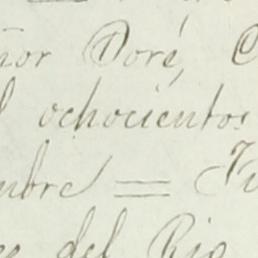 ñor Doré,
ochocientos
mbre =
del Rio